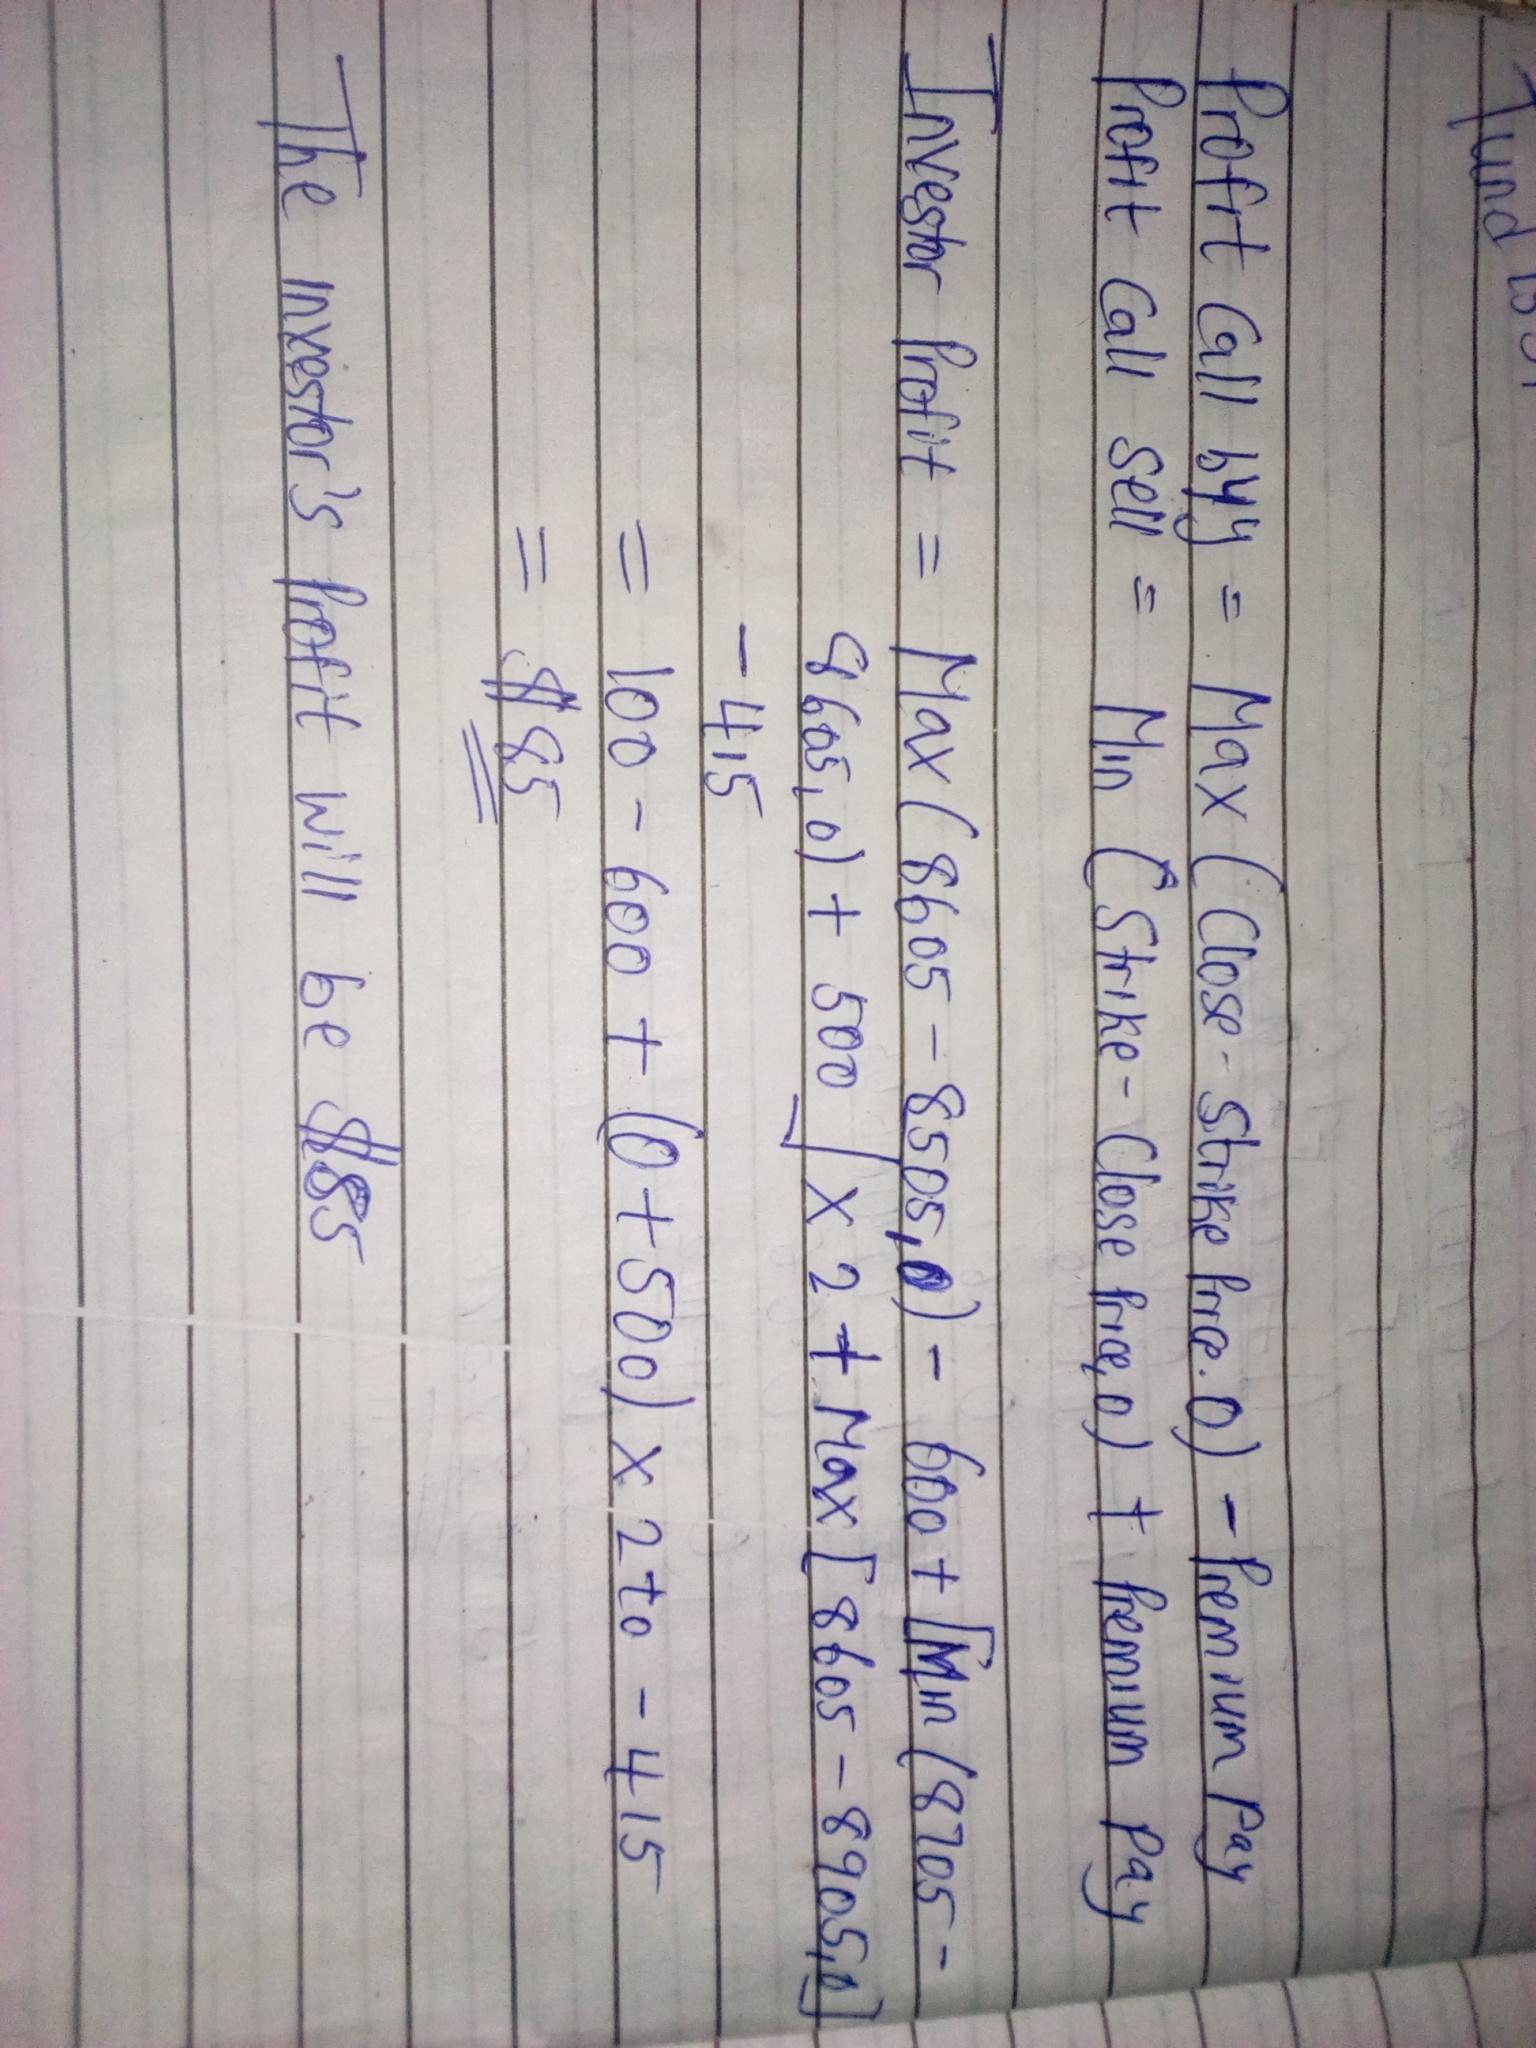 Fund to
Profit Call byy = Max (Close - Strike Price. 0) - Premium Pay
Profit Call Sell = Min (Strike - Close Price, 0) + Premium Pay
Investor Profit = Max (8605 - 8505, 0) - 600 + [Min (8705 -
8605, 0) + 500] x 2 + Max [8605 - 8905, 0]
- 415
= 100 - 600 + (0 + 500) x 2 + 0 - 415
= $85
The investor's Profit will be $85